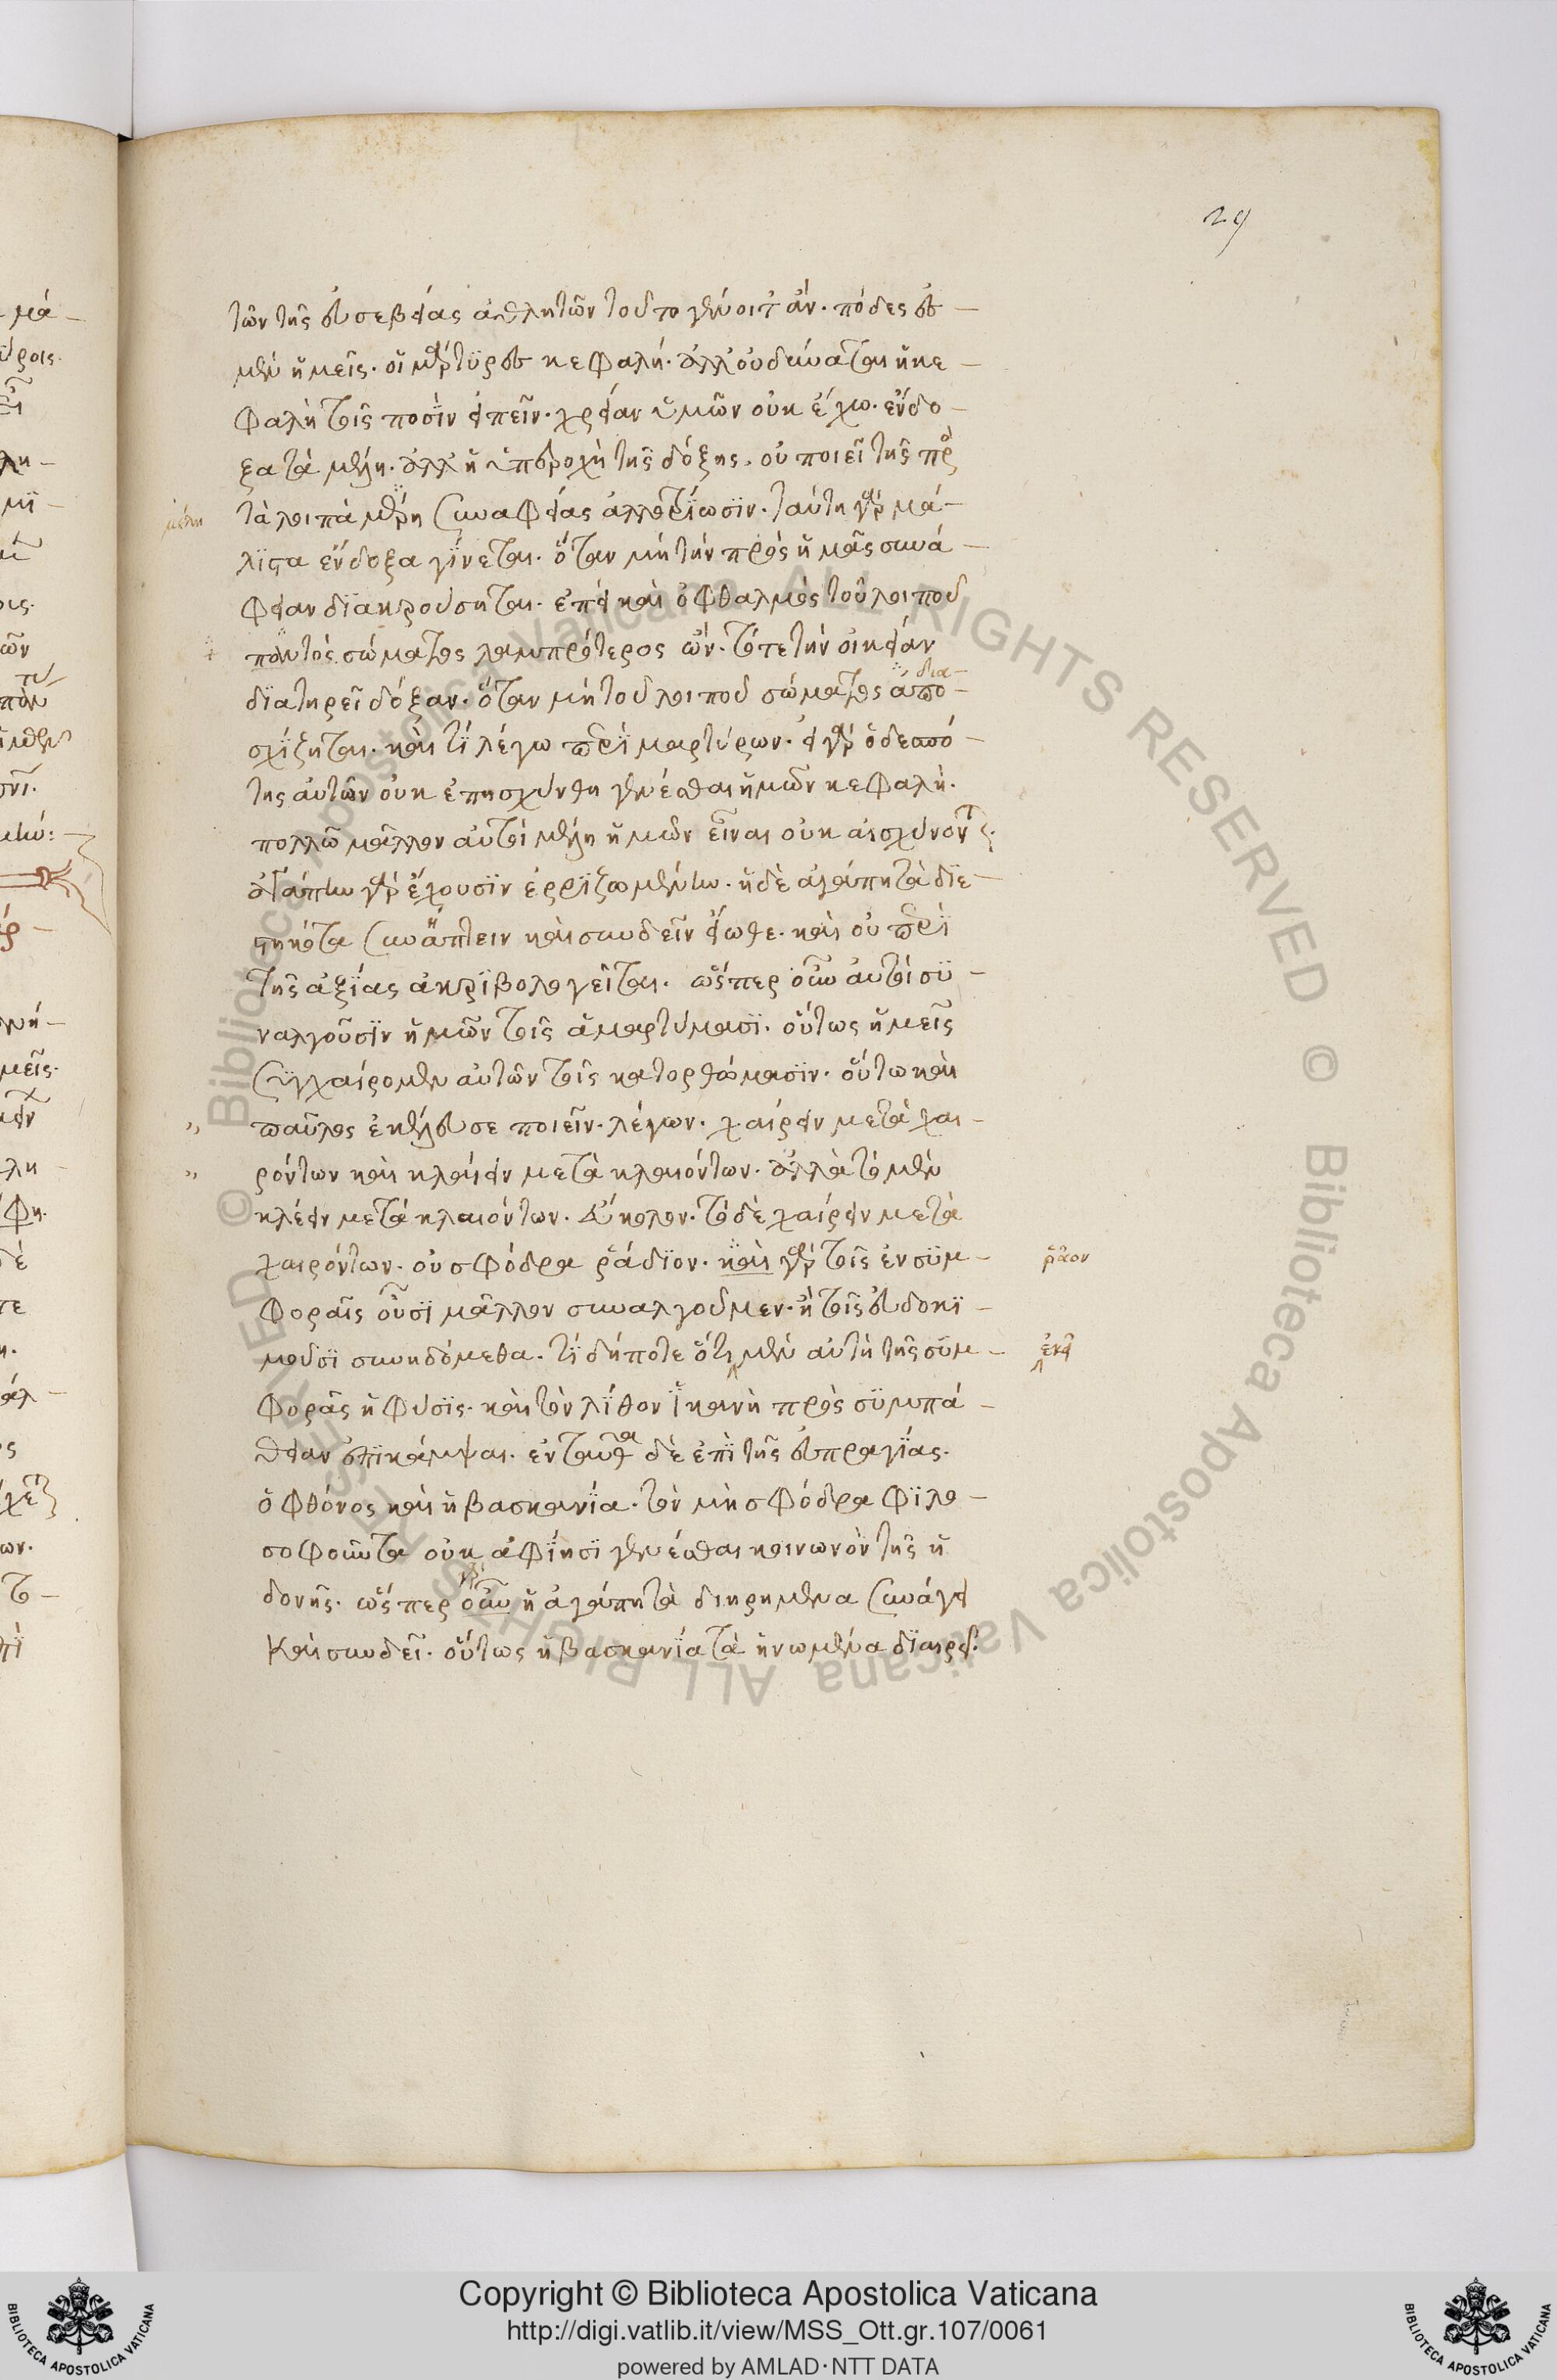 29
τῶν τῆς εὐσεβείας ἀθλητῶν τοῦτο γένοιτ' ἄν. πόδες ἐσ-
μὲν ἡμεῖς. οἱ μάρτϋρες κεφαλή. ἀλλ' οὐ δύναται ἡ κε-
φαλὴ τοῖς ποσὶν εἰπεῖν. χρείαν ὑμῶν οὐκ ἔχω. ἔνδο-
ξα τὰ μέλη. ἀλλ' ἡ ὑπεροχὴ τῆς δόξης. οὐ ποιεῖ τῆς πρὸς
τὰ λοιπὰ μέρη συναφείας ἀλλοτρίωσϊν. ταύτη γὰρ μά-
μέλη
λϊστα ἔνδοξα γίνεται. ὅταν μὴ τὴν πρὸς ἡμᾶς συνά-
φειαν δϊακρούσηται. ἐπεὶ καὶ ὀφθαλμὸς τοῦ λοιποῦ
παντὸς σώματος λαμπρότερος ὤν. τότε τὴν οἰκείαν
δϊατηρεῖ δόξαν. ὅταν μὴ τοῦ λοιποῦ σώματος ἀπο-
δια-
σχίζηται. καὶ τί λέγω περὶ μαρτύρων. εἰ γὰρ ὁ δεσπό-
της αὐτῶν οὐκ ἐπησχύνθη γενέσθαι ἡμῶν κεφαλή.
πολλῶ μᾶλλον αὐτοὶ μέλη ἡμῶν εἶναι οὐκ αἰσχύνονται.
ἀγάπην γὰρ ἔχουσϊν ἐρριζωμένην. ἡ δὲ ἀγάπη τὰ διε-
στηκότα συνάπτειν καὶ συνδεῖν εἴωθε. καὶ οὐ περὶ
τῆς ἀξίας ἀκρϊβολογεῖται. ὥσπερ οὖν αὐτοὶ σϋ-
ναλγοῦσϊν ἡμῶν τοῖς ἁμαρτήμασϊ. οὕτως ἡμεῖς
συγχαίρομεν αὐτῶν τοῖς κατορθώμασϊν. οὕτω καὶ
" παῦλος ἐκέλευσε ποιεῖν. λέγων. χαίρειν μετὰ χαι-
" ρόντων καὶ κλαίειν μετὰ κλαιόντων. ἀλλὰ τὸ μὲν
κλέειν μετὰ κλαιόντων. εὔκολον. τὸ δὲ χαίρειν μετὰ
χαιρόντων. οὐ σφόδρα ῥάδϊον. καὶ γὰρ τοῖς ἐν σϋμ-
ῥᾶον
φοραῖς οὖσϊ μᾶλλον συναλγοῦμεν. ἢ τοῖς εὐδοκϊ-
μοῦσϊ συνηδόμεθα. τί δήποτε ὅτι μὲν αὐτὴ τῆς σϋμ-
ἐκεῖ
φορᾶς ἡ φύσϊς. καὶ τὸν λίθον ἱκανὴ πρὸς σϋμπά-
θειαν ἐπϊκάμψαι. ἐνταῦθα δὲ ἐπὶ τῆς εὐπραγϊας.
ὁ φθόνος καὶ ἡ βασκανία. τὸν μὴ σφόδρα φϊλο-
σοφοῦντα οὐκ ἀφίησϊ γενέσθαι κοινωνὸν τῆς ἡ
δονῆς. ὥσπερ οὖν ἡ ἀγάπη τὰ διηρημένα συνάγει
γὰρ
καὶ συνδεῖ. οὕτως ἡ βασκανία τὰ ἡνωμένα δϊαιρεῖ.
Copyright © Biblioteca Apostolica Vaticana
http://digi.vatlib.it/view/MSS_Ott.gr.107/0061
powered by AMLAD·NTT DATA